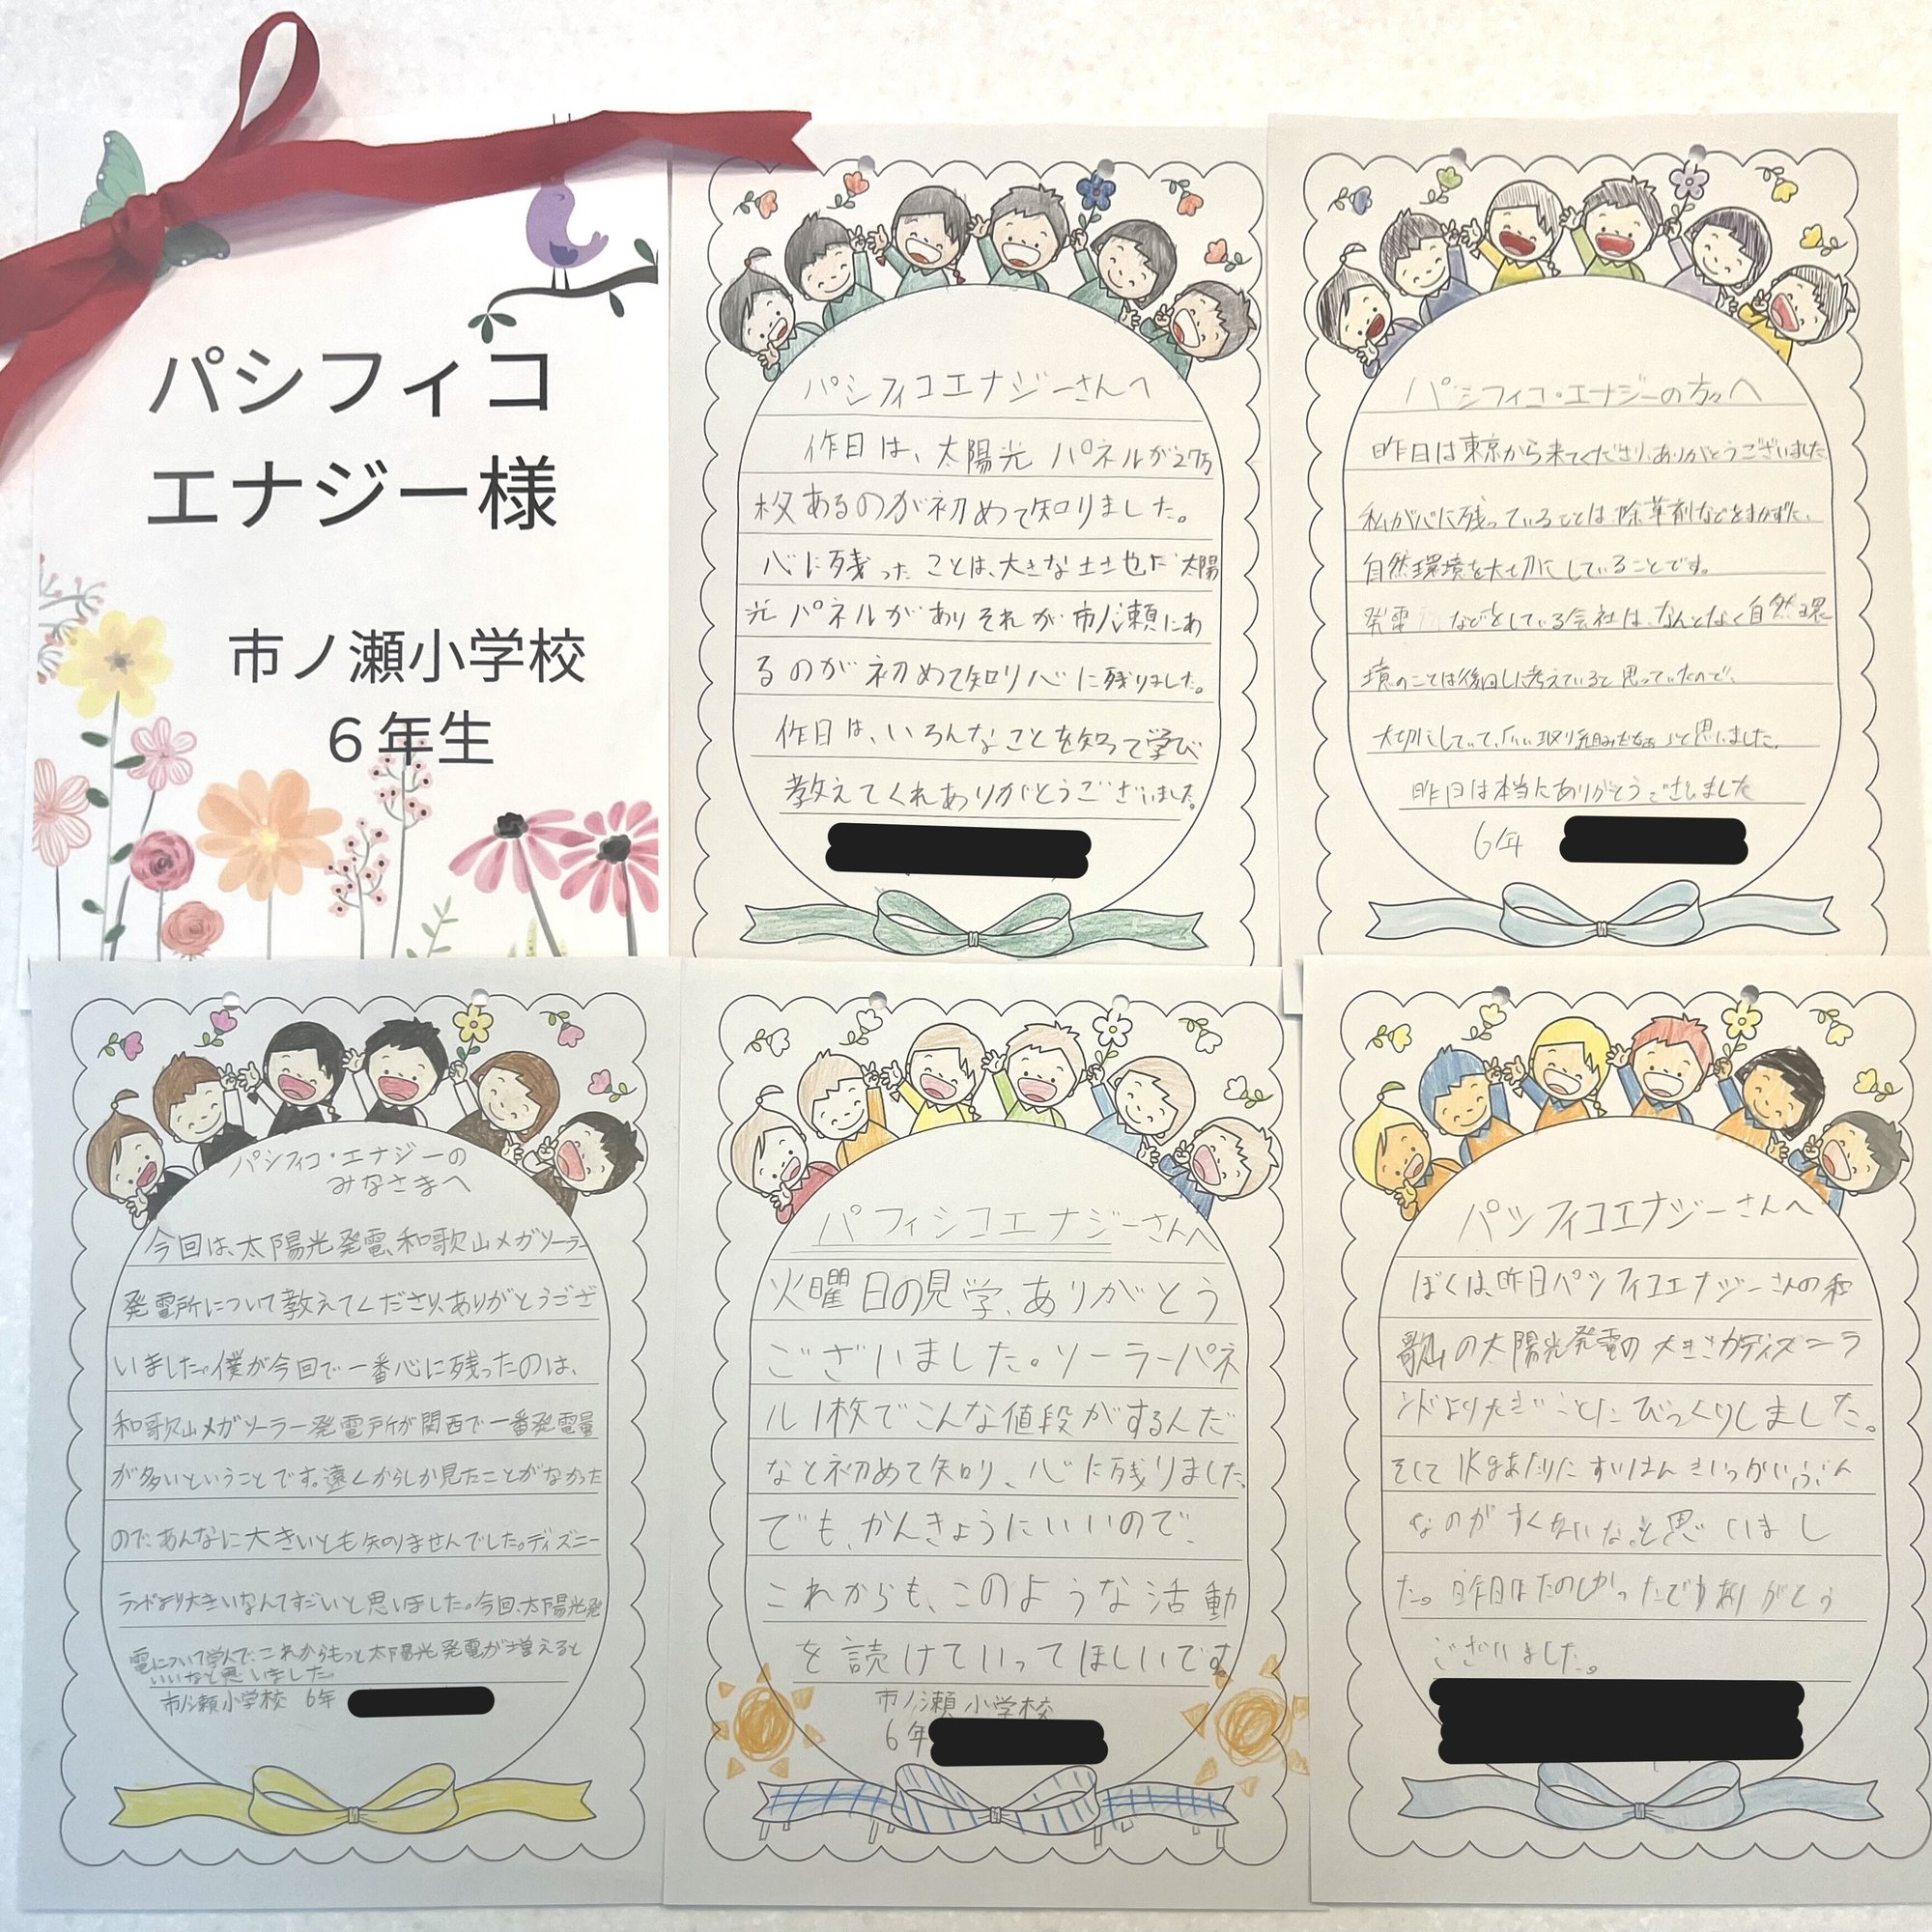 パシフィコ
エナジー様
市ノ瀬小学校
６年生
パシフィコエナジーさんへ
作日は、太陽光パネルが27万
枚あるのが初めて知りました。
心に残ったことは、大きな土地に太陽
光パネルがありそれが市ノ瀬にあ
るのが初めて知り心に残りました。
作日は、いろんなことを知って学び
教えてくれありがとうございました。
パシフィコ・エナジーの方々へ
昨日は東京から来てくださり、ありがとうございました。
私が心に残っていることは除草剤などをまかずに、
自然環境を大切にしていることです。
発電 などをしている会社は、なんとなく自然環
境のことは後回しに考えていると思っていたので、
大切にしていて、いい取り組みだなぁと思いました。
昨日は本当にありがとうございました
6年
パシフィコ・エナジーの
みなさまへ
今回は、太陽光発電、和歌山メガソーラー
発電所について教えてくださり、ありがとうござ
いました。僕が今回で一番心に残ったのは、
和歌山メガソーラー発電所が関西で一番発電量
が多いということです。遠くからしか見たことがなかった
ので、あんなに大きいとも知りませんでした。ディズニー
ランドより大きいなんてすごいと思いました。今回、太陽光発
電について学んで、これからもっと太陽光発電が増えると
いいなと思いました。
市ノ瀬小学校 6年
パフィシコエナジーさんへ
火曜日の見学、ありがとう
ございました。ソーラーパネ
ル1枚でこんな値段がするんだ
なと初めて知り、心に残りました。
でも、かんきょうにいいので、
これからも、このような活動
を読けていってほしいです。
市ノ瀬小学校
6年
パシフィコエナジーさんへ
ぼくは、昨日パシフィコエナジーさんの和
歌山の太陽光発電の大きさがディズニーラ
ンドより大きいことにびっくりしました。
そして1kgあたりにすいはんき いっかいぶん
なのがすくないなと思いまし
た。昨日はたのしかったですありがとう
ございました。